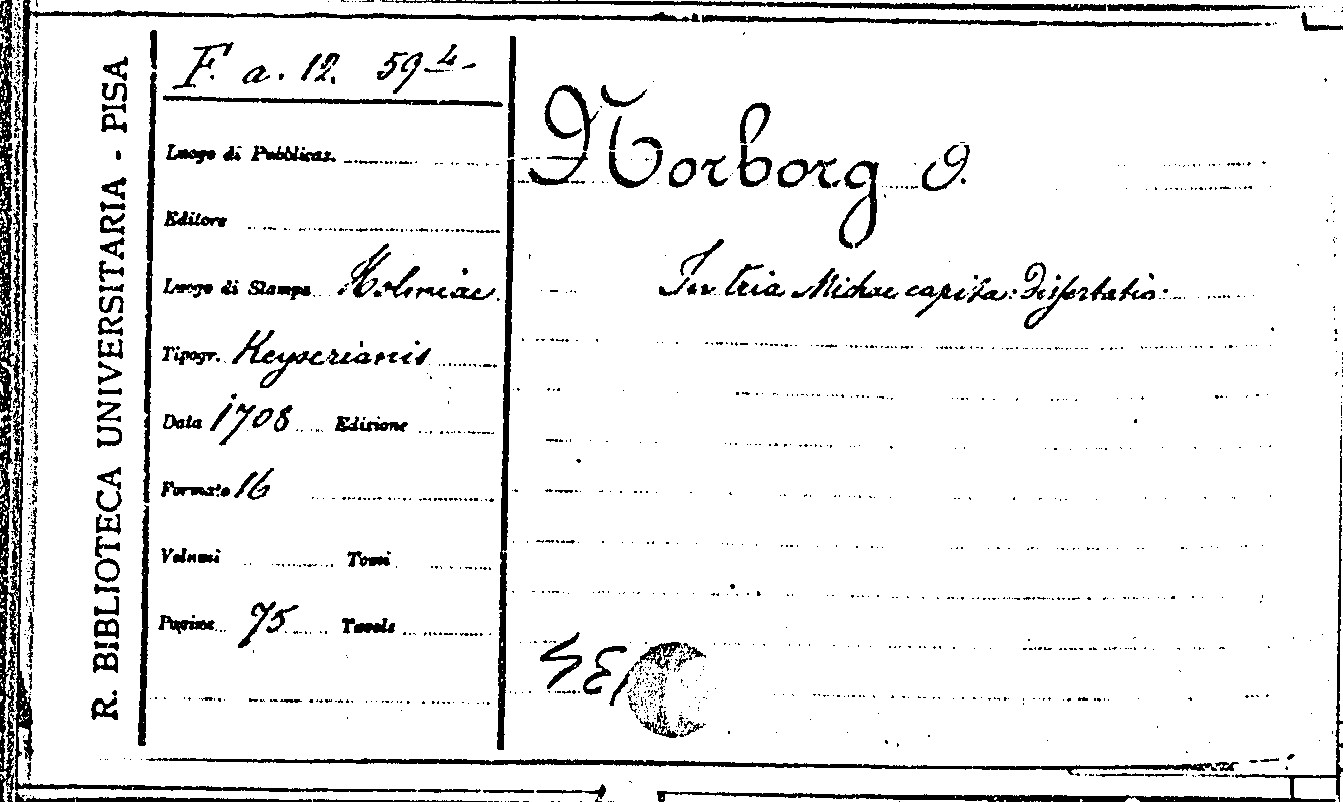 R. BIBLIOTECA UNIVERSITARIA - PISA
F. a. 12. 59 4
Luogo di Pubblicaz.
Editore
Luogo di Stampa Holmiae
Tipogr. Keyserianis
Data 1708 Edizione
Formato 16
Volumi Tomi
Pagine 75 Tavole
Norborg O.
In tria Michae capita: Dissertatio.